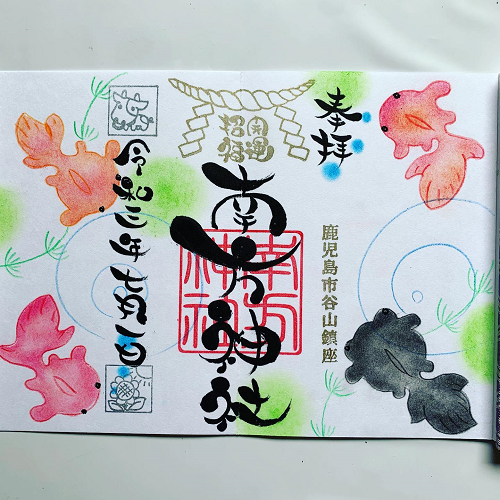 奉拝
鹿児島市谷山鎮座
開運
招福
南方神社
南方
神社
令和三年七月一日